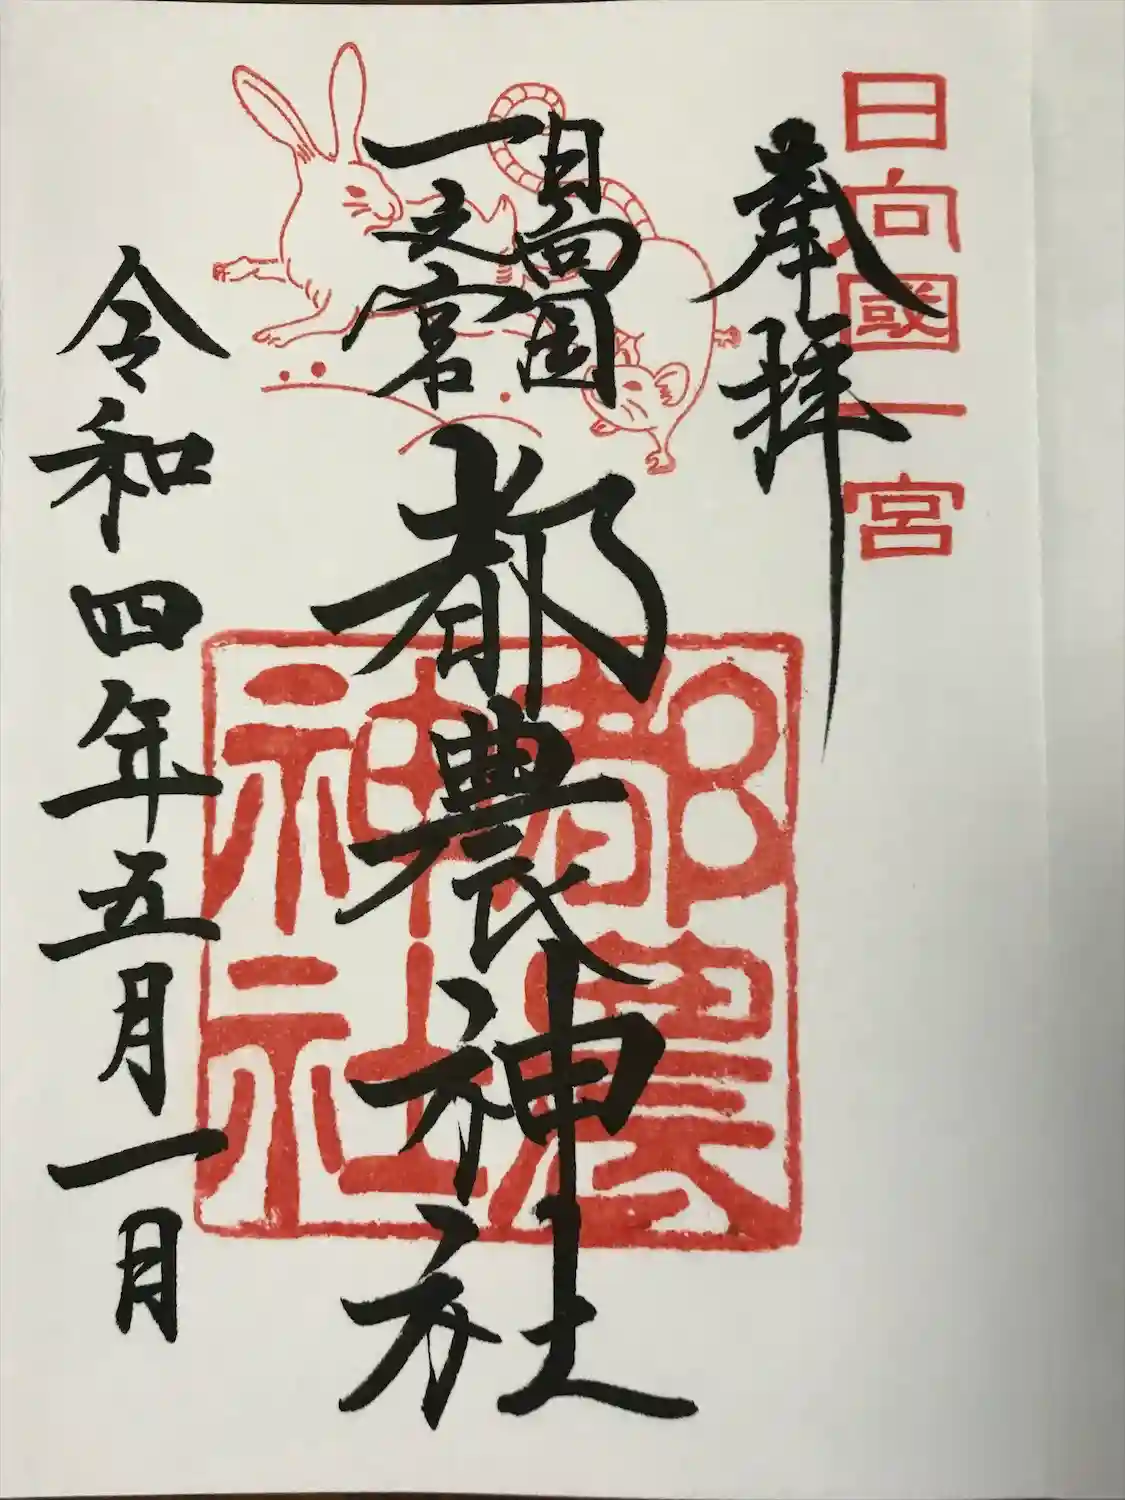 日向國一宮
奉拝
日向国
一之宮
都農神社
都農神社
令和四年五月一日